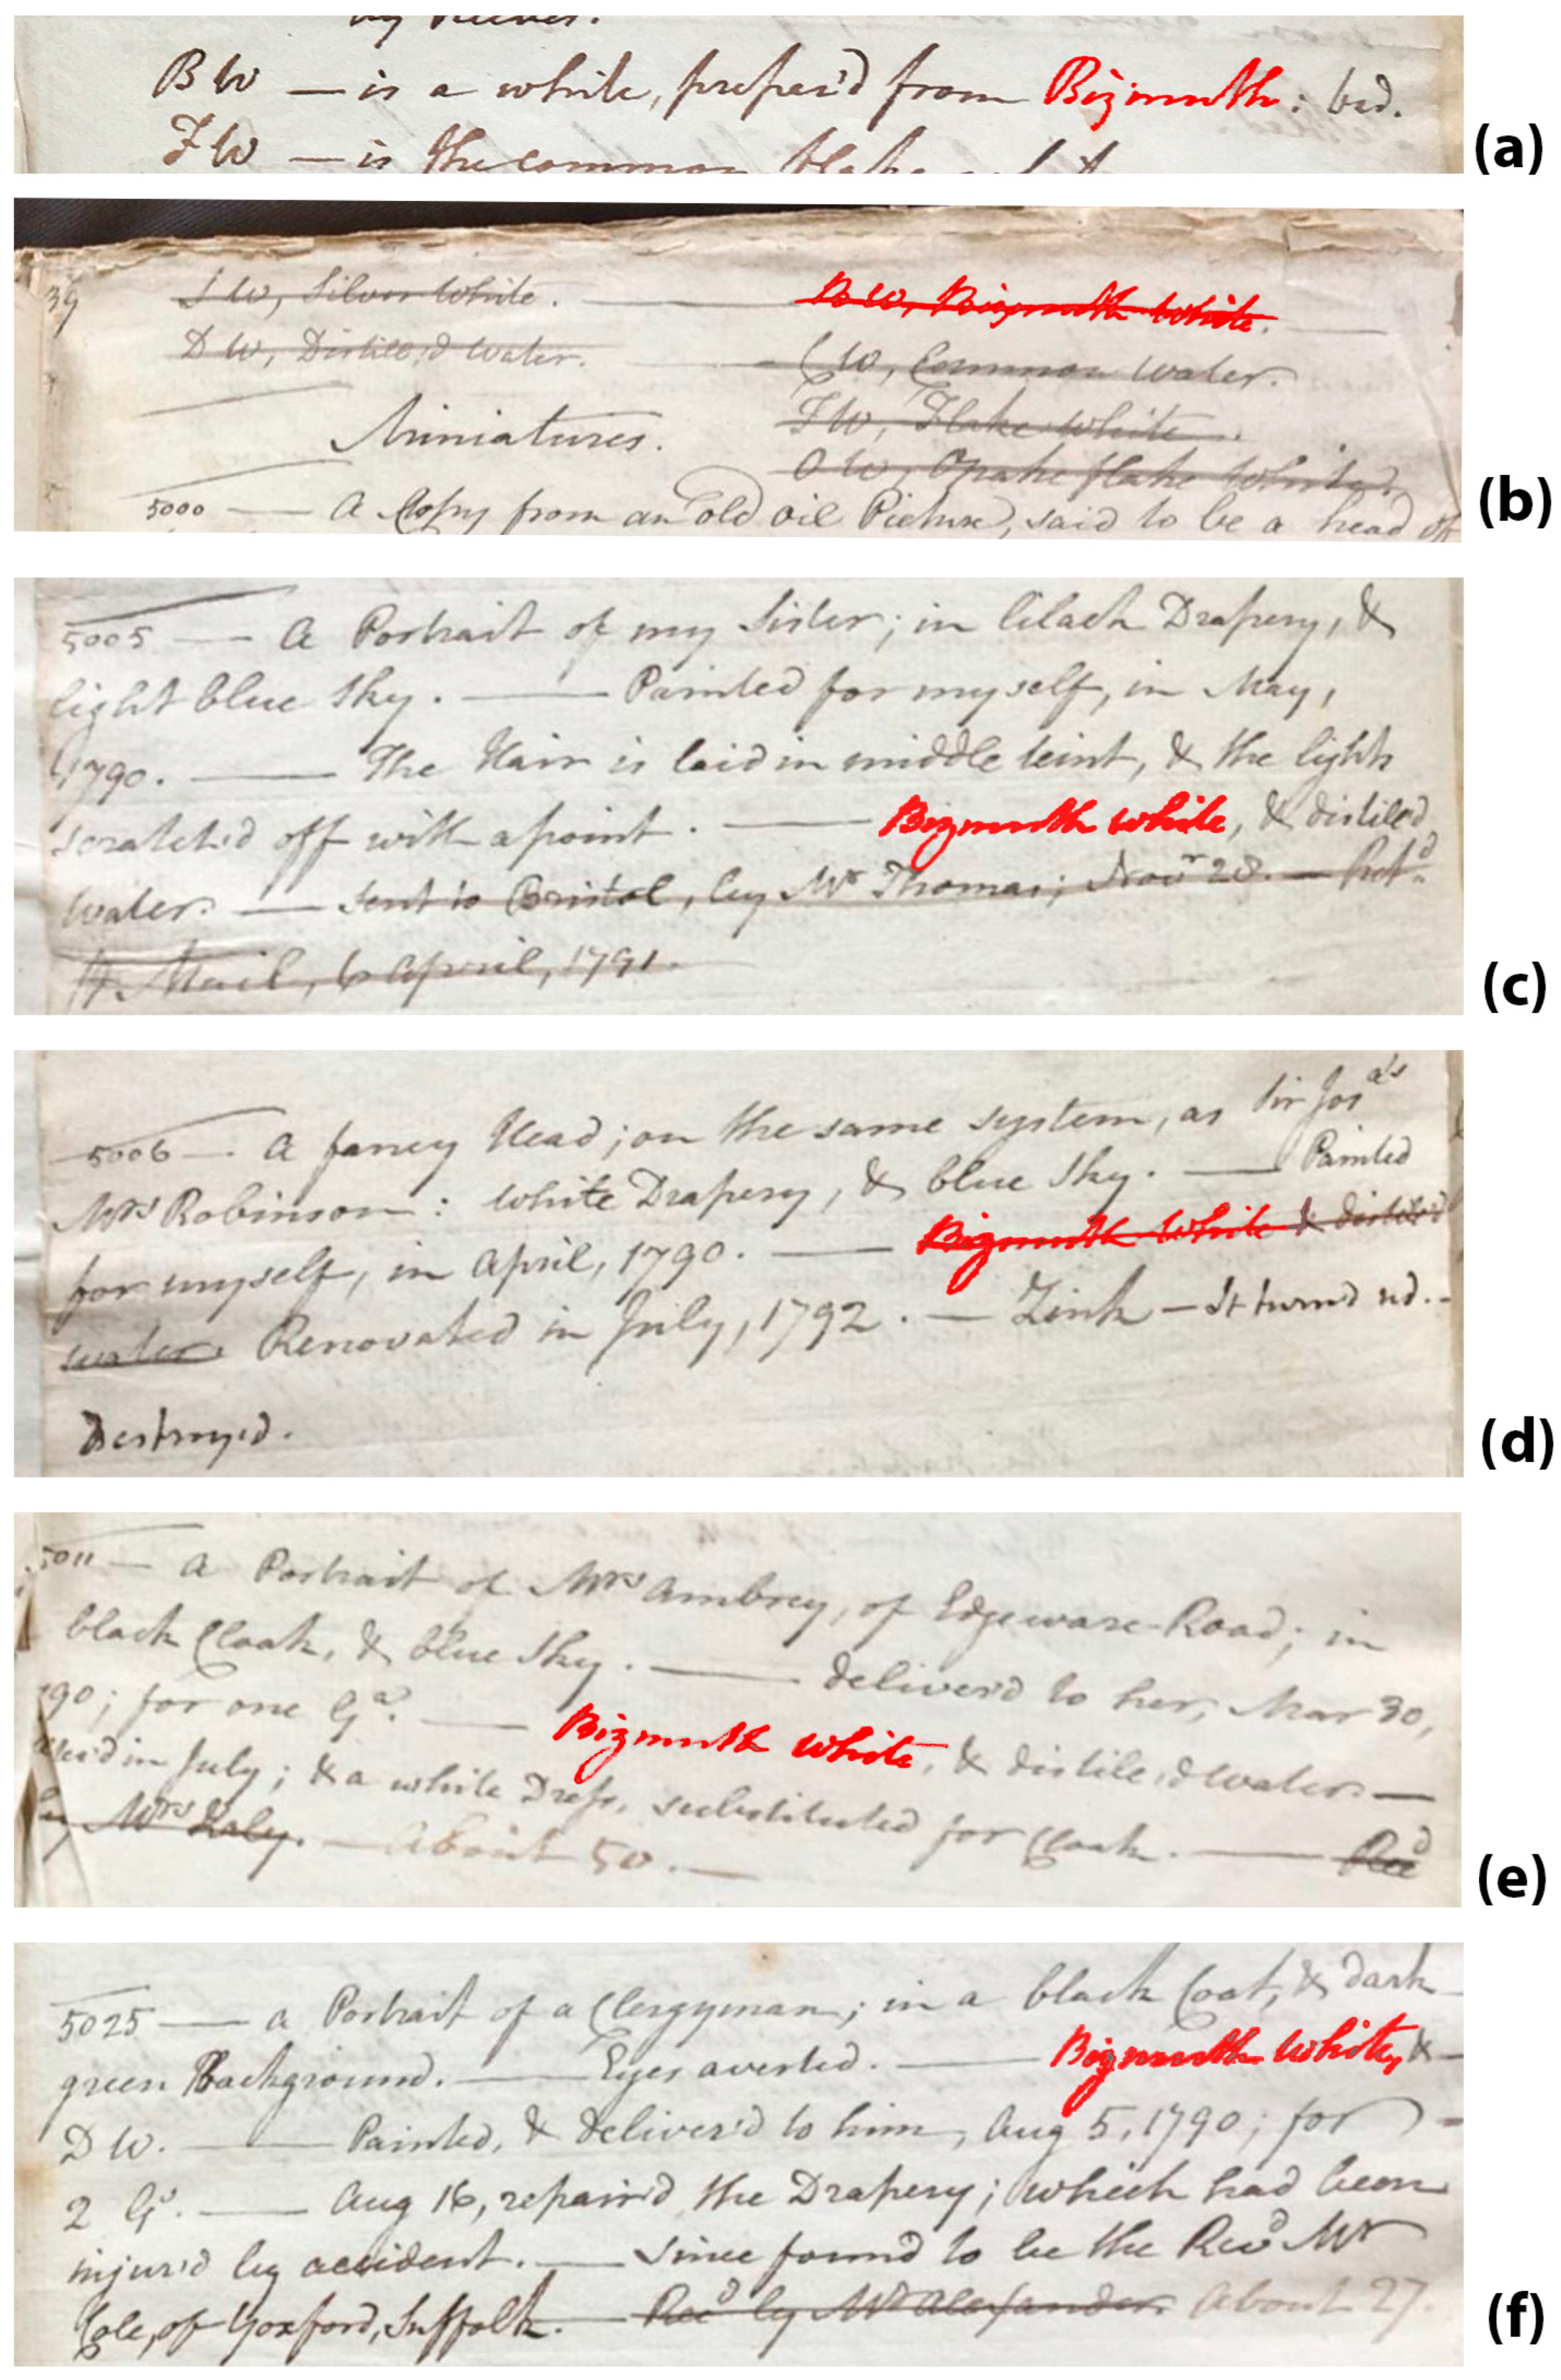 by Reeves.
BW — is a white, prepar'd from Bizmuth: bad.
FW — is the common flake
(a)
39
SW, Silver White. — BW, Bizmuth White. —
DW, Distill'd Water. — CW, Common Water.
Miniatures. FW, Flake White.
OW, Opake flake White.
5000 — A Copy from an old oil Picture, said to be a head of
(b)
5005 — A Portrait of my Sister; in lilach Drapery, &
light blue Sky. — Painted for myself, in May,
1790. — The Hair is laid in middle teint, & the lights
scratch'd off with a point. — Bizmuth White, & distill'd
water. — Sent to Bristol, by Mr Thomas; Novr 28. — Retd
Mail, 6 April, 1791.
(c)
5006 — A fancy Head; on the same system, as Sir Josa's
Mrs Robinson: White Drapery, & blue Sky. — Painted
for myself, in April, 1790. — Bizmuth White & distill'd
water. Renovated in July, 1792. — Zink — It turn'd
Destroy'd.
(d)
5011 — A Portrait of Mrs Ambrey, of Edgeware-Road; in
black Cloak, & blue Sky. — deliver'd to her, Mar 30,
90; for one Ga. — Bizmuth White, & distile'd water. —
in July; & a white Dress, substituted for Cloak. — Recd
by Mrs Daly. — About 50. —
(e)
5025 — a Portrait of a Clergyman; in a black Coat, & dark
green Background. — Eyes averted. — Bizmuth White, &
DW. — Painted, & deliver'd to him, Aug 5, 1790; for
2 Gs. — Aug 16, repair'd the Drapery; which had been
injur'd by accident. — Since found to be the Revd Mr
Cole, of Yoxford, Suffolk. — Recd by Mr Alexander. About 27.
(f)